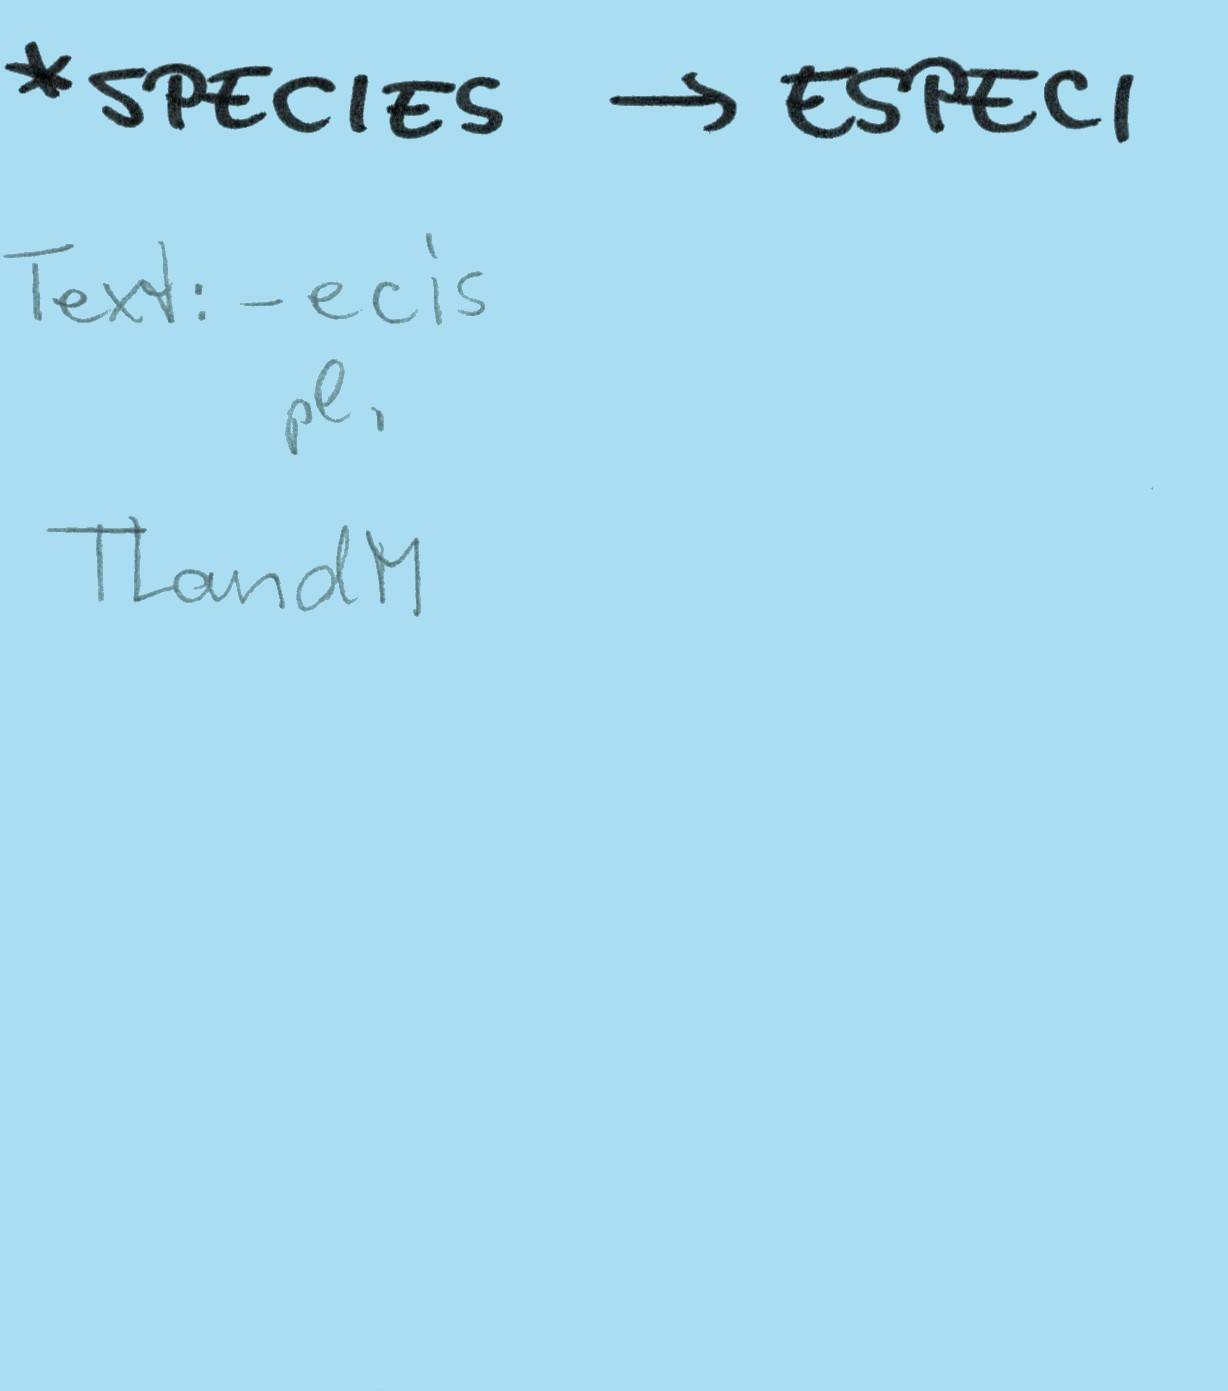 *SPECIES → ESPECI
Text: -ecis
pl.
TLandM